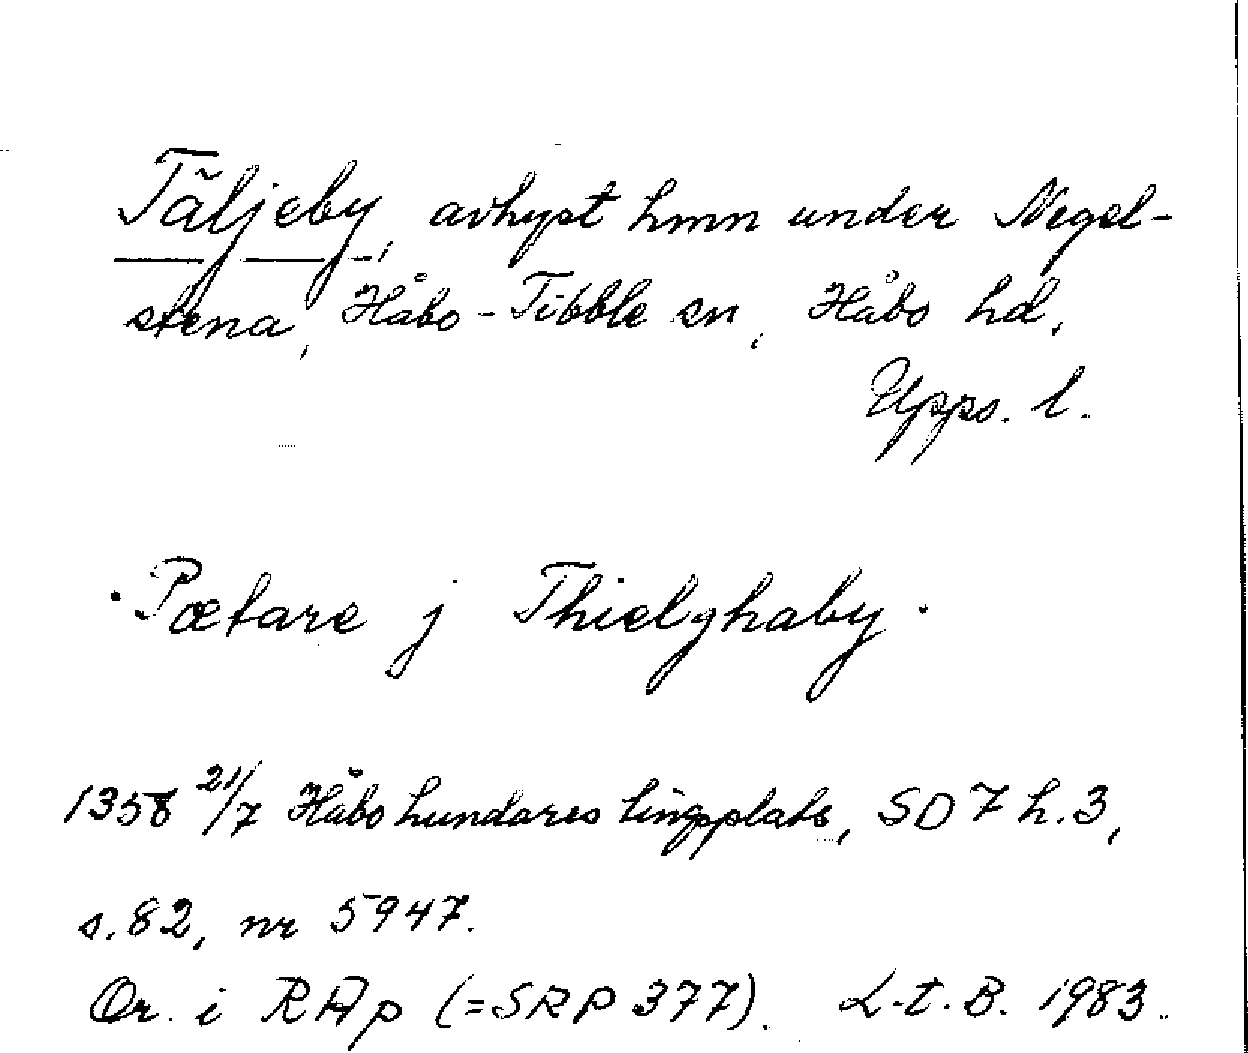 Täljeby, avhyst hmn under Negel-
stena, Håbo-Tibble sn, Håbo hd,
Upps. l.
·Pætare j Thielghaby·
1358 21/7 Håbo hundares tingsplats, SD 7 h. 3,
s. 82, nr 5947.
Or. i RAp (=SRP 377). L-t. B. 1983.